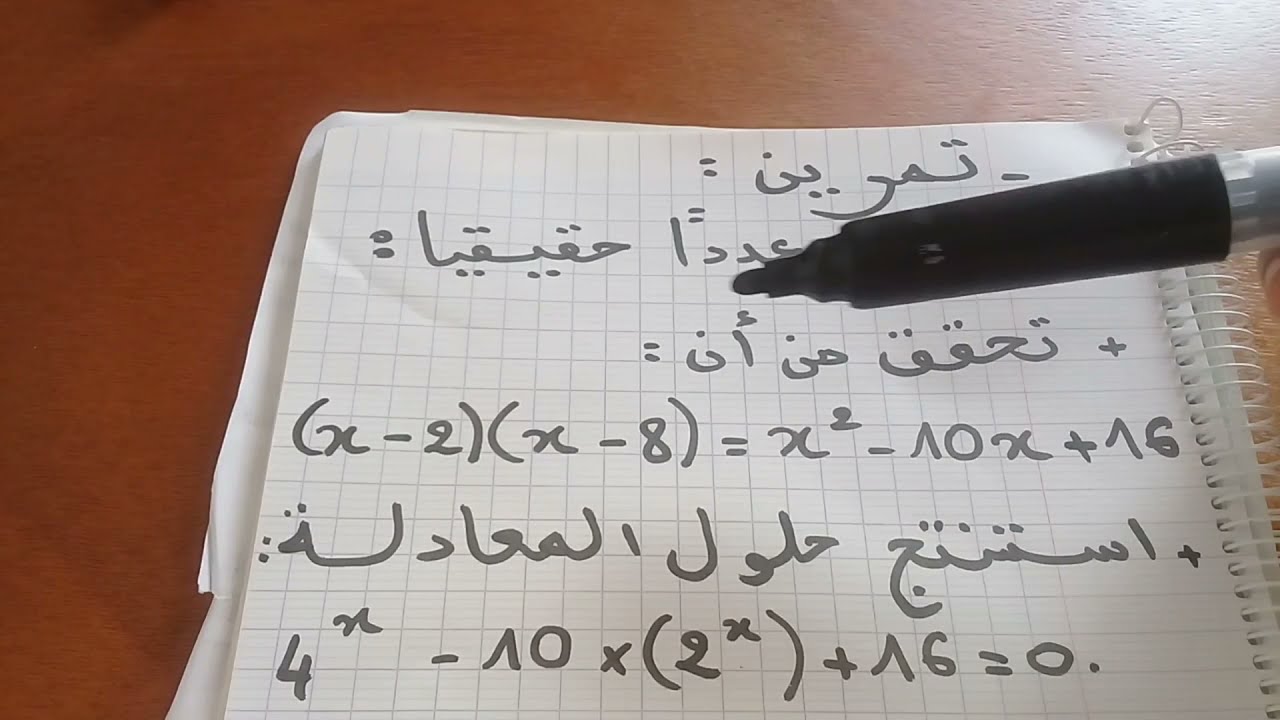 - تمرين :
عددًا حقيقيا :
+ تحقق من أن :
(x - 2)(x - 8) = x² - 10x + 16
+ استنتج حلول المعادلة :
4^x - 10 × (2^x) + 16 = 0.